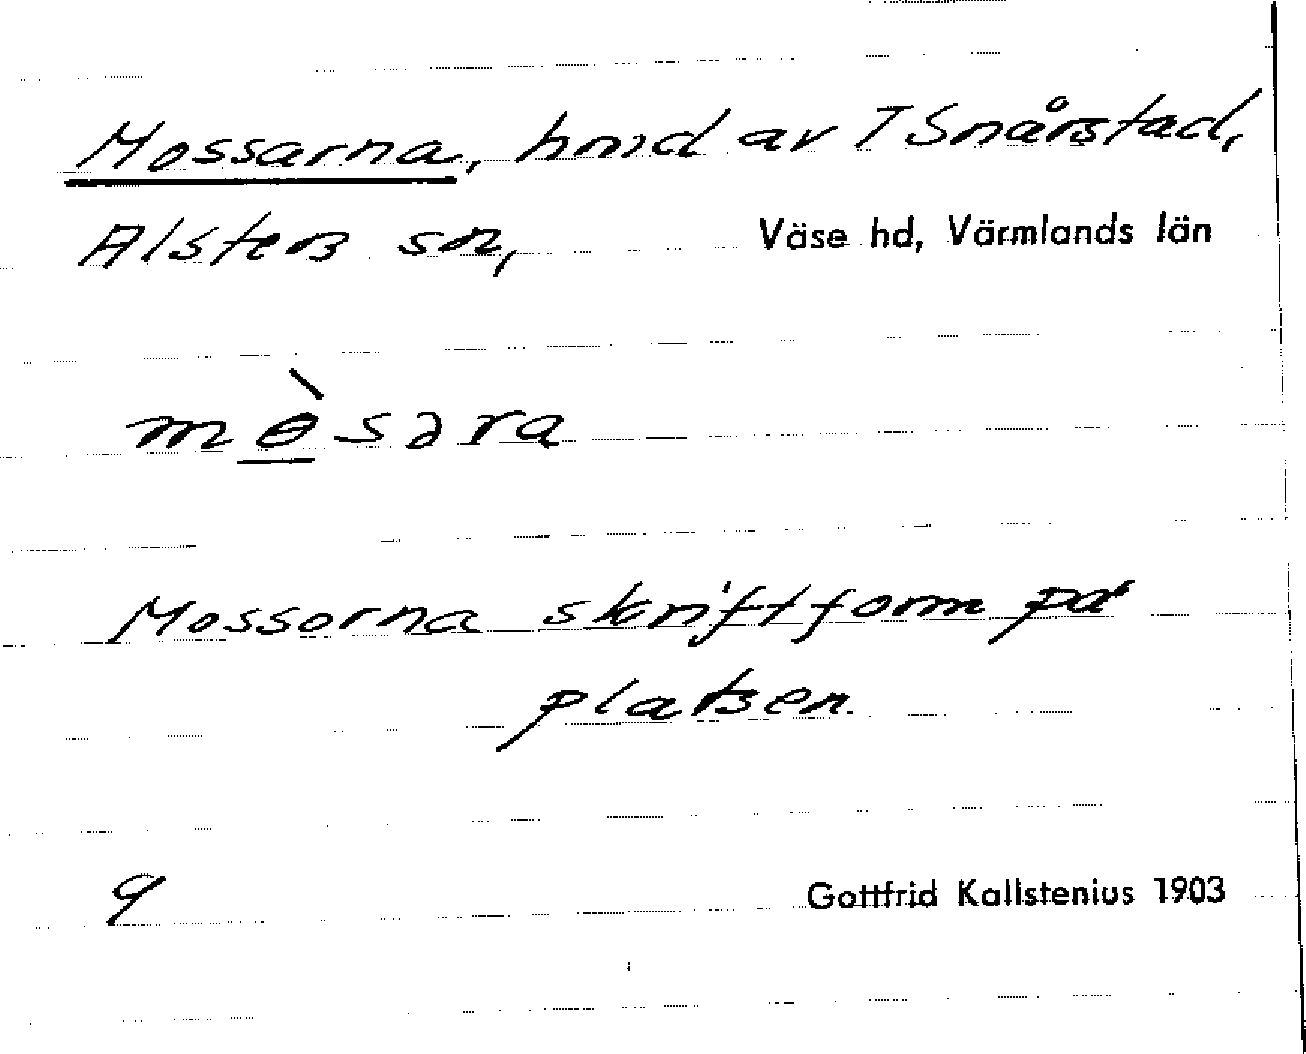 Mossarna, hmd av T Snårstad,
Alsters sn, Väse hd, Värmlands län
mɵ̀sara
Mossorna skriftform på
platsen.
9
Gottfrid Kallstenius 1903